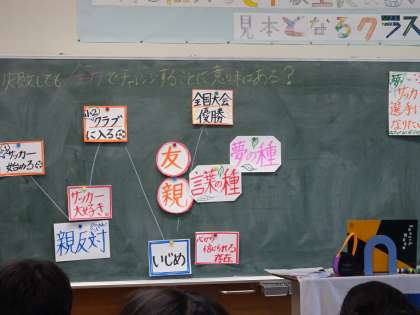 見本となるクラス
失敗しても全力でチャレンジすることに意味はある？
全国大会
優勝
小2
クラブ
に入る
サッカー
始める
友
親
夢の種
言葉の種
サッカー
大好き
親反対
いじめ
心から
信じられる
存在
夢
サッカー
選手に
なりたい